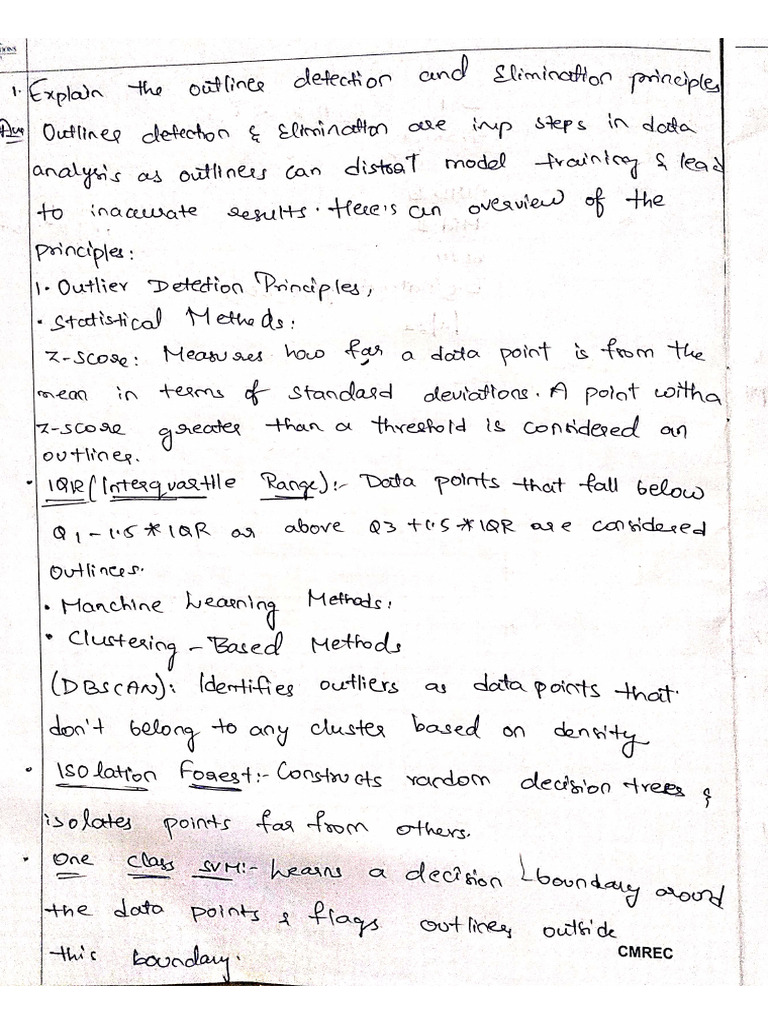 1. Explain the outlines detection and Elimination principles
Ans Outlines detection & Elimination are imp steps in data
analysis as outliners can distrat model training & lead
to inaccurate results. Here's an overview of the
principles:
1. Outlier Detection Principles,
• Statistical Methods:
Z-score: Measures how far a data point is from the
mean in terms of standard deviations. A point with a
Z-score greater than a threshold is considered an
outlines.
• IQR (Interquartile Range):- Data points that fall below
Q1 - 1.5 * IQR or above Q3 + 1.5 * IQR are considered
outlines.
• Manchine Learning Methods:
• Clustering - Based Methods
(DBSCAN): Identifies outliers as data points that
don't belong to any cluster based on density
• Isolation Forest:- Constructs random decision trees &
isolates points far from others.
• One class SVM:- Learns a decision boundary around
the data points & flags outlines outside
this boundary.
CMREC